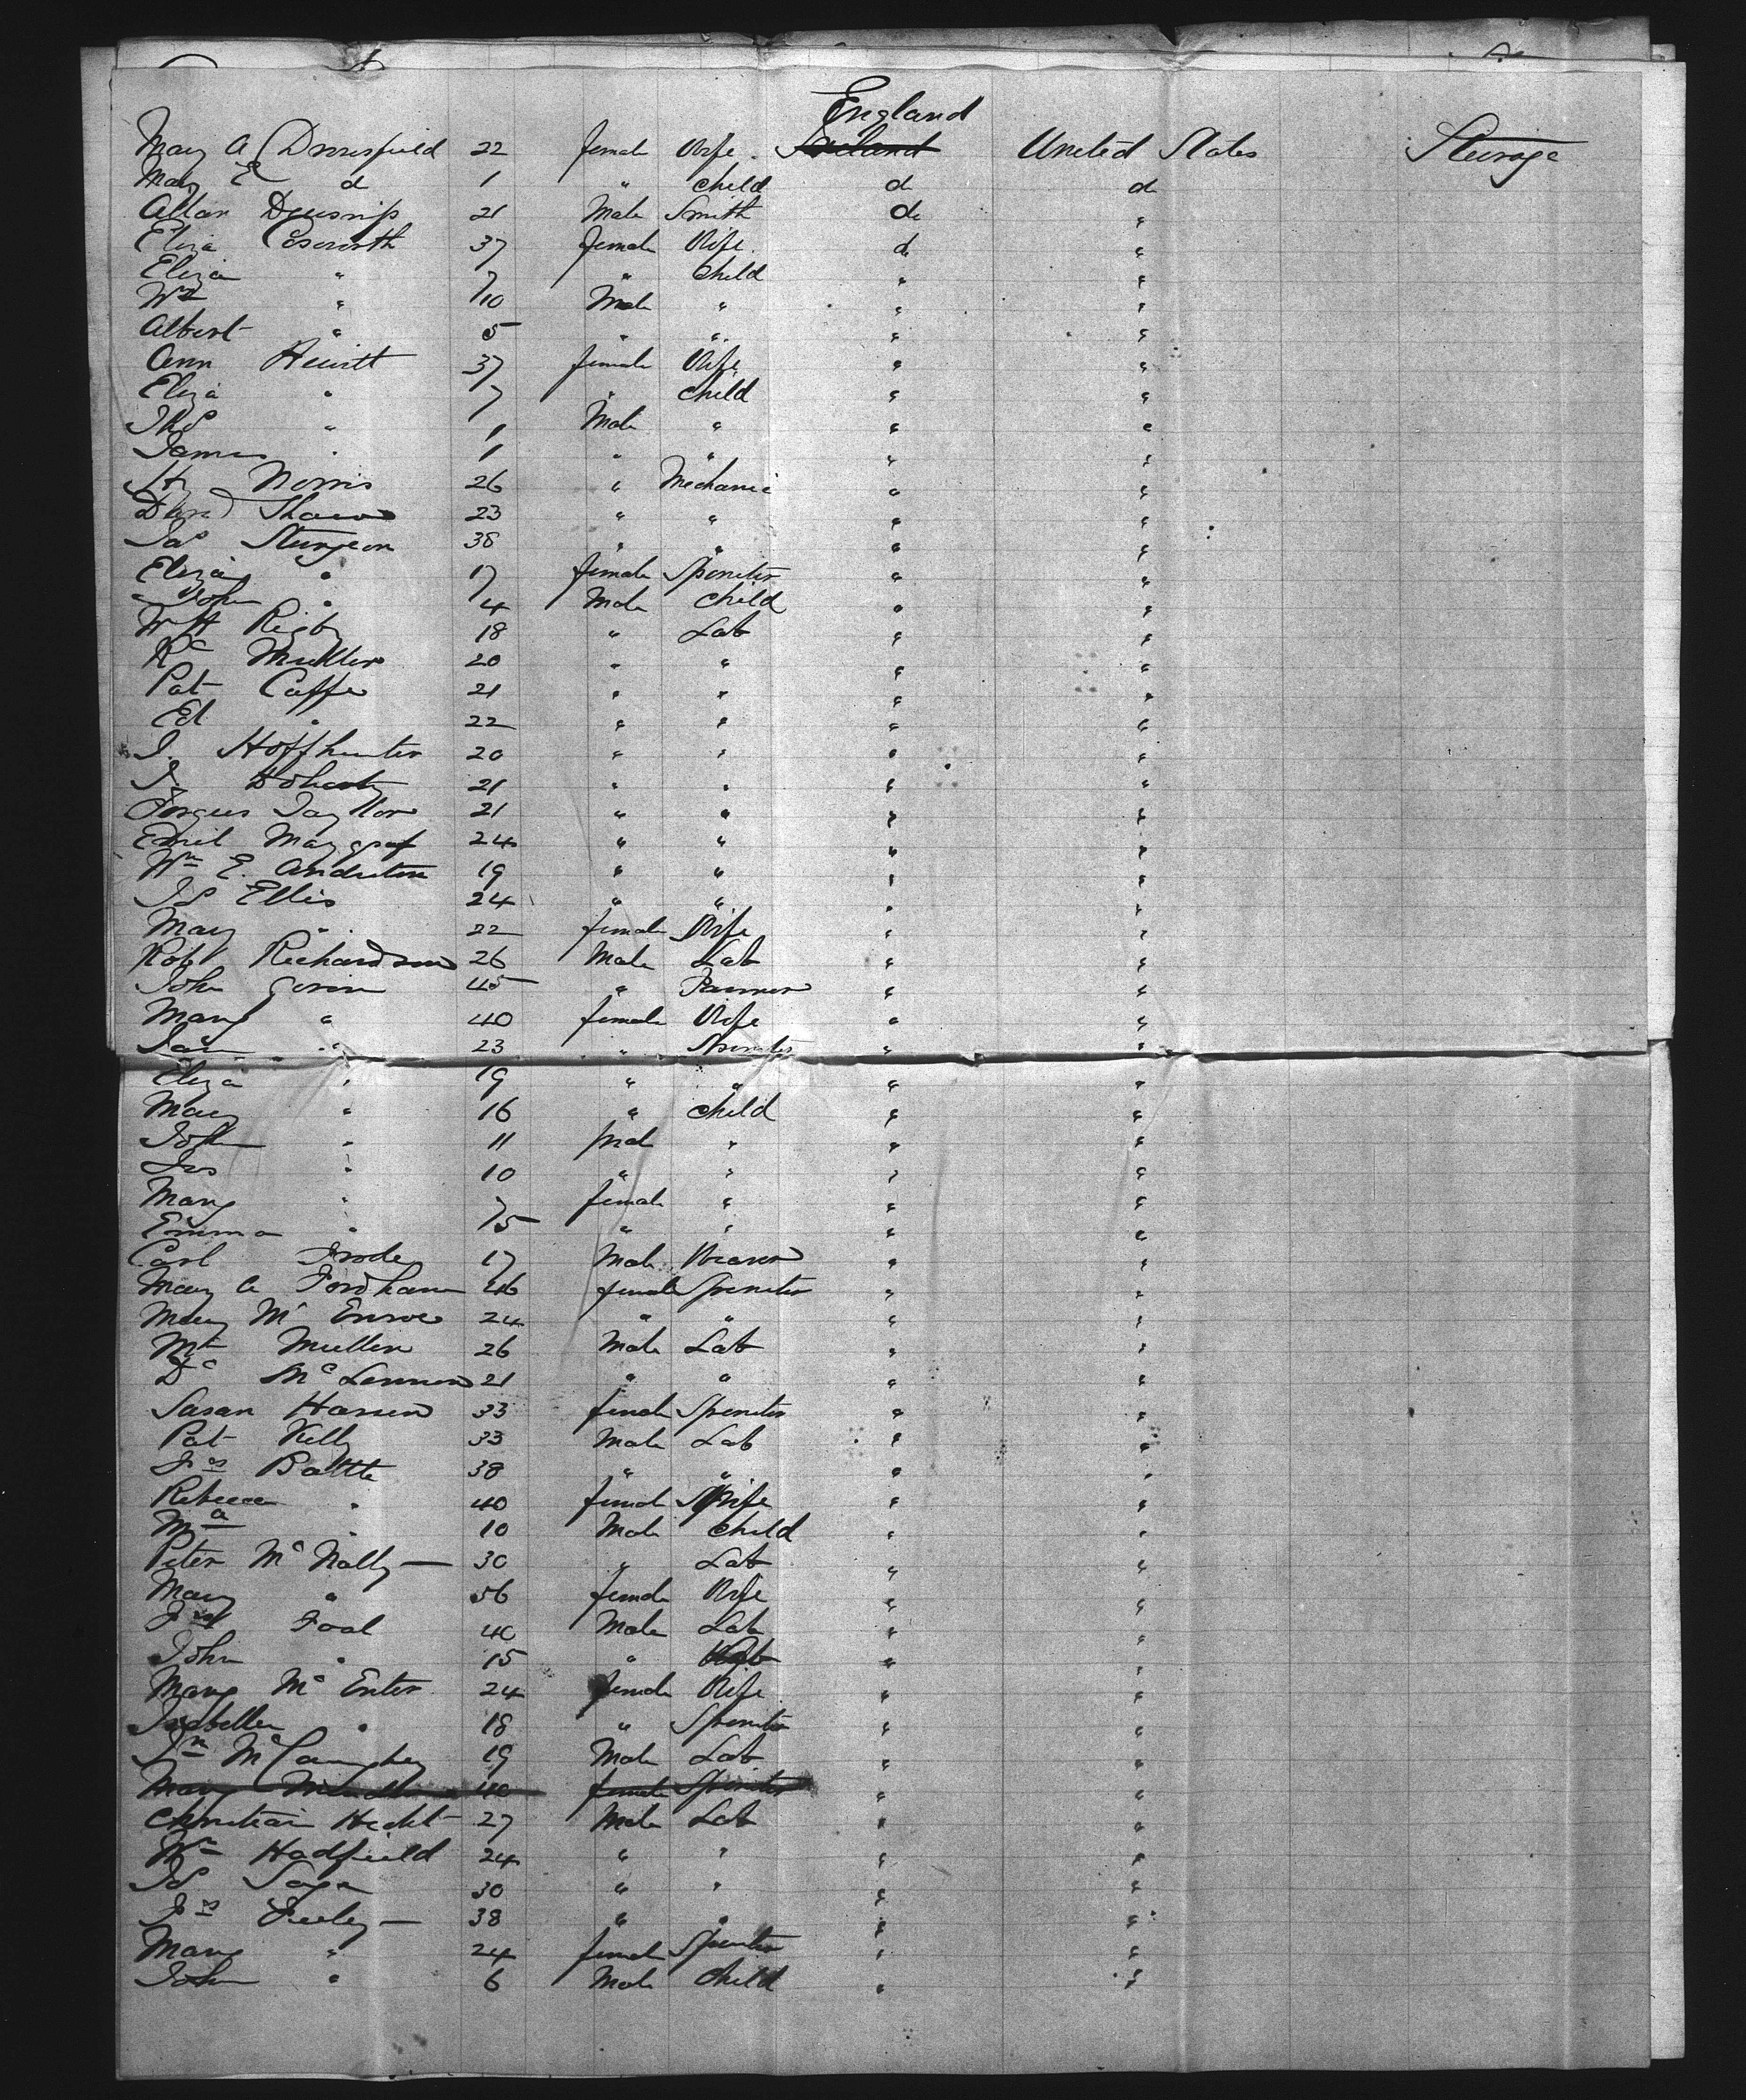 England
Mary A 22 female Wife Ireland United States Steerage
Mary E d 1 " child d d
Allan 21 Male Smith do "
Eliza 37 female Wife d "
Eliza " 7 " child " "
Wm " 10 Male " " "
Albert " 5 " " " "
Ann Hewitt 37 female Wife " "
Eliza " 7 " child " "
Ths " 1 Male " " "
James " 1 " " " "
Hy Norris 26 " Mechanic " "
David Shaw 23 " " " "
Jas Sturgeon 38 " " " "
Eliza " 17 female Spinster " "
John " 4 Male child " "
W H Rigby 18 " Lab " "
Rd 20 " " " "
Pat Caffe 21 " " " "
Ed " 22 " " " "
J. Hoffhunter 20 " " " "
J. Doherty 21 " " " "
Fergus Taylor 21 " " " "
Emil 24 " " " "
Wm E. Anderton 19 " " " "
Js Ellis 24 " " " "
Mary " 22 female Wife " "
Robt Richardson 26 Male Lab " "
John 45 " Farmer " "
Mary " 40 female Wife " "
Jane " 23 " Spinster " "
Eliza " 19 " " " "
Mary " 16 " child " "
John " 11 Male " " "
Jas " 10 " " " "
Mary " 7 female " " "
Emma " 5 " " " "
Carl 17 Male Weaver " "
Mary A Fordham 26 female Spinster " "
Mary Mc Enroe 24 " " " "
Mt Mullen 26 Male Lab " "
Dd Mc Lennon 21 " " " "
Susan 33 female Spinster " "
Pat Kelly 33 Male Lab " "
Js Battle 38 " " " "
Rebecca " 40 female Wife " "
Ma " 10 Male child " "
Peter Mc Nally 30 " Lab " "
Mary " 56 female Wife " "
Foal 40 Male Lab " "
John " 15 " " "
Mary Mc Enter 24 female Wife " "
Isabella " 18 " Spinster " "
Jn McCaughey 19 Male Lab " "
Mary 40 female Spinster " "
Christian Hecht 27 Male Lab " "
Wm Hadfield 24 " " " "
Js 30 " " " "
Js Feeley 38 " " " "
Mary " 24 female Spinster " "
John " 6 Male child " "